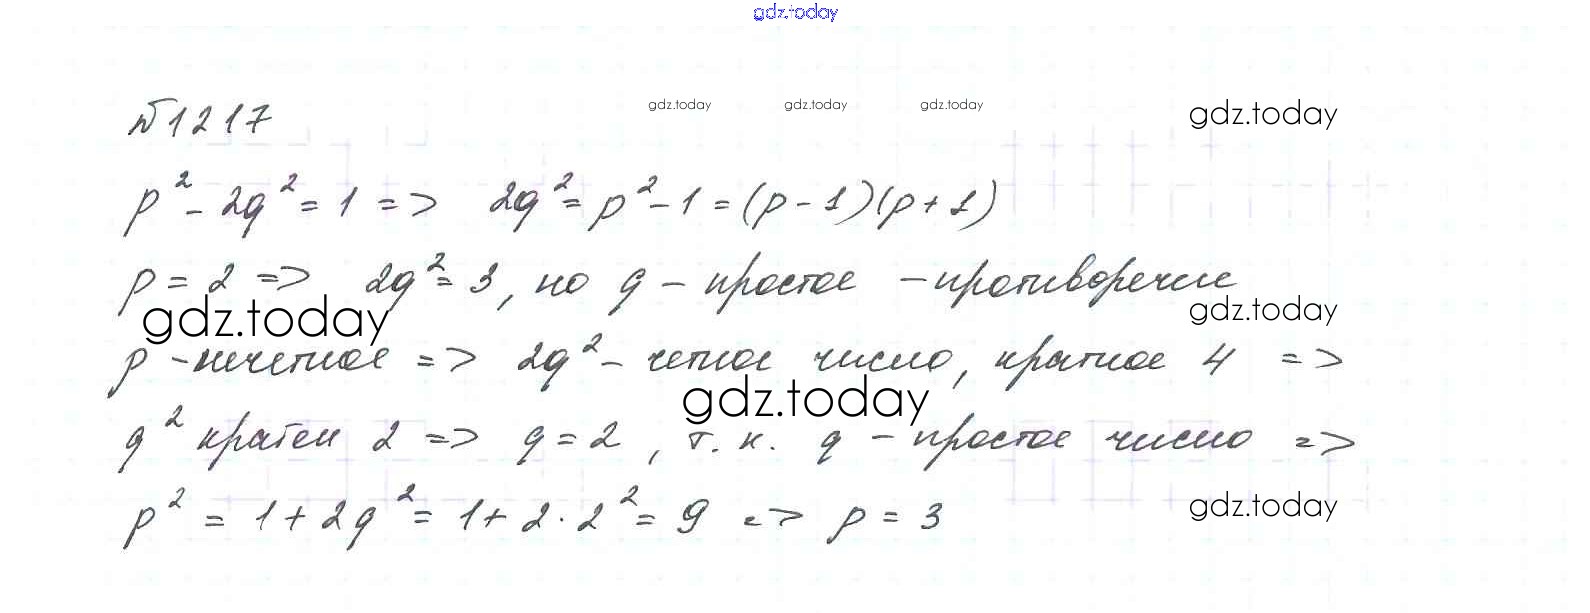 gdz.today
gdz.today gdz.today gdz.today gdz.today
№1217
p² - 2q² = 1 => 2q² = p² - 1 = (p - 1)(p + 1)
p = 2 => 2q² = 3, но q - простое - противоречие
gdz.today gdz.today
p - нечетное => 2q² - четное число, кратное 4 =>
gdz.today
q² кратен 2 => q = 2, т. к. q - простое число =>
p² = 1 + 2q² = 1 + 2 · 2² = 9 => p = 3
gdz.today